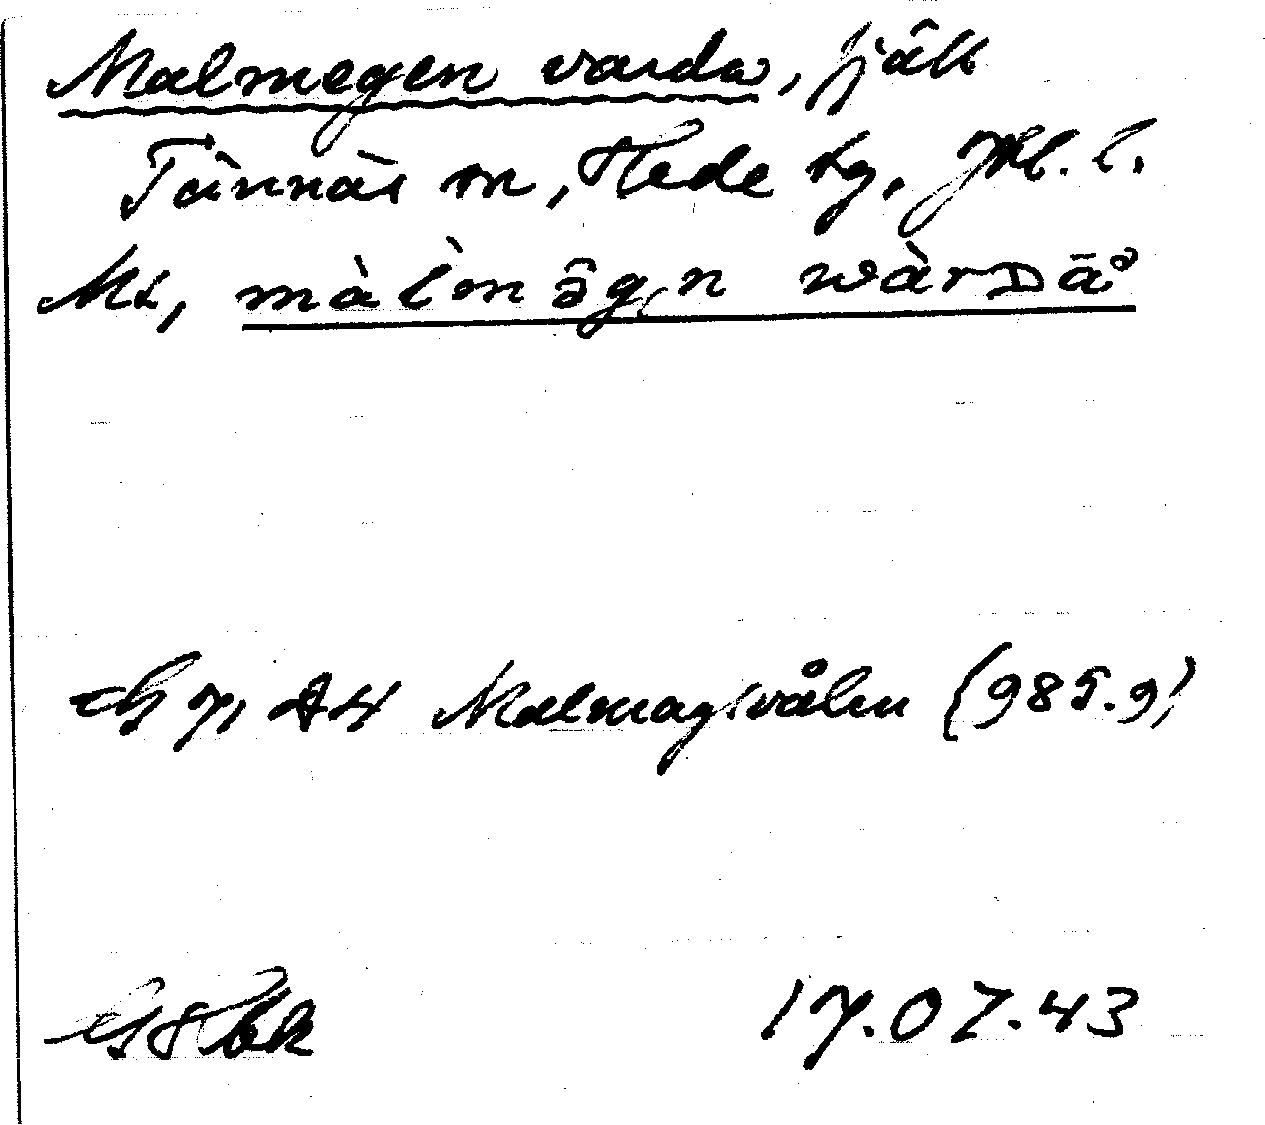 Malmegen varda, fjäll
Tännäs sn, Hede tg, Jtl. l.
Ms, màlmāgn wàrDāº
7, A4 Malmagsvålen (985.9)
17.07.43